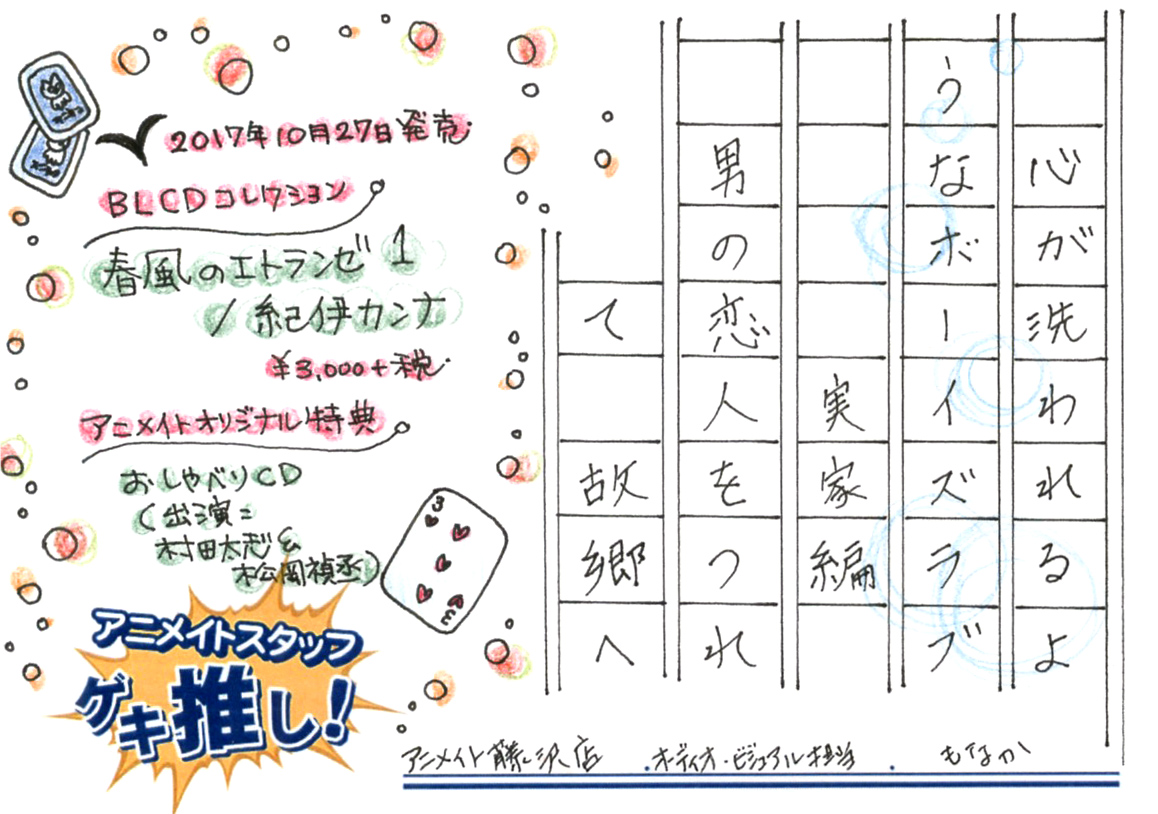 2017年10月27日発売
BLCDコレクション
春風のエトランゼ1
/紀伊カンナ
¥3,000+税
アニメイトオリジナル特典
おしゃべりCD
(出演:
村田太志&
松岡禎丞)
3
3
アニメイトスタッフ
ゲキ推し!
心が洗われるよ
うなボーイズラブ
実家編
男の恋人をつれ
て 故郷へ
アニメイト藤沢店 .オーディオ・ビジュアル担当 . もなか